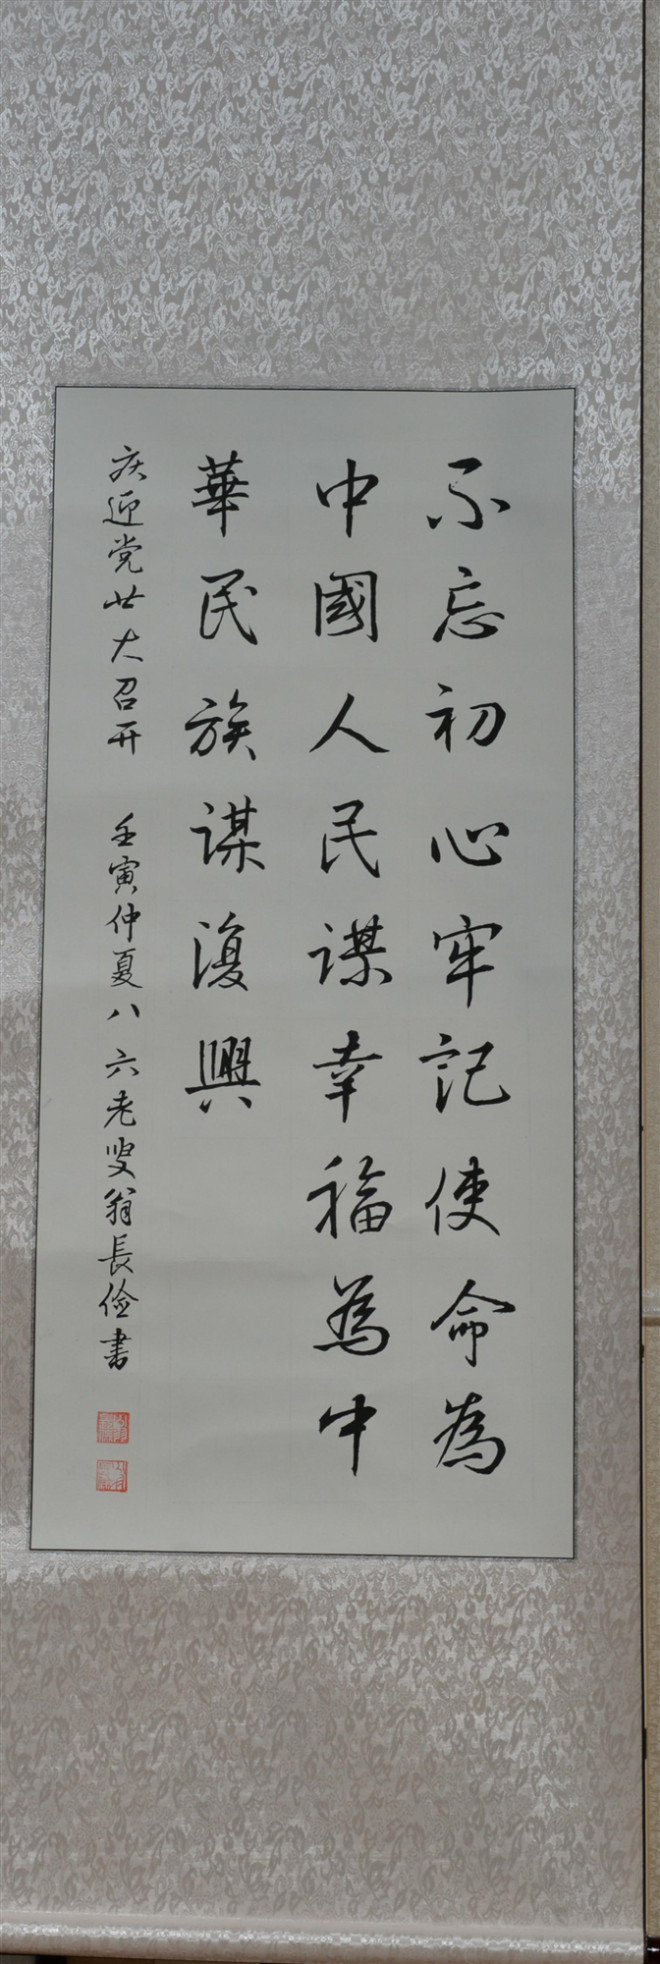 不忘初心牢记使命為
中國人民謀幸福為中
華民族謀復興
庆迎党廿大召开 壬寅仲夏八六老叟翁長俭書